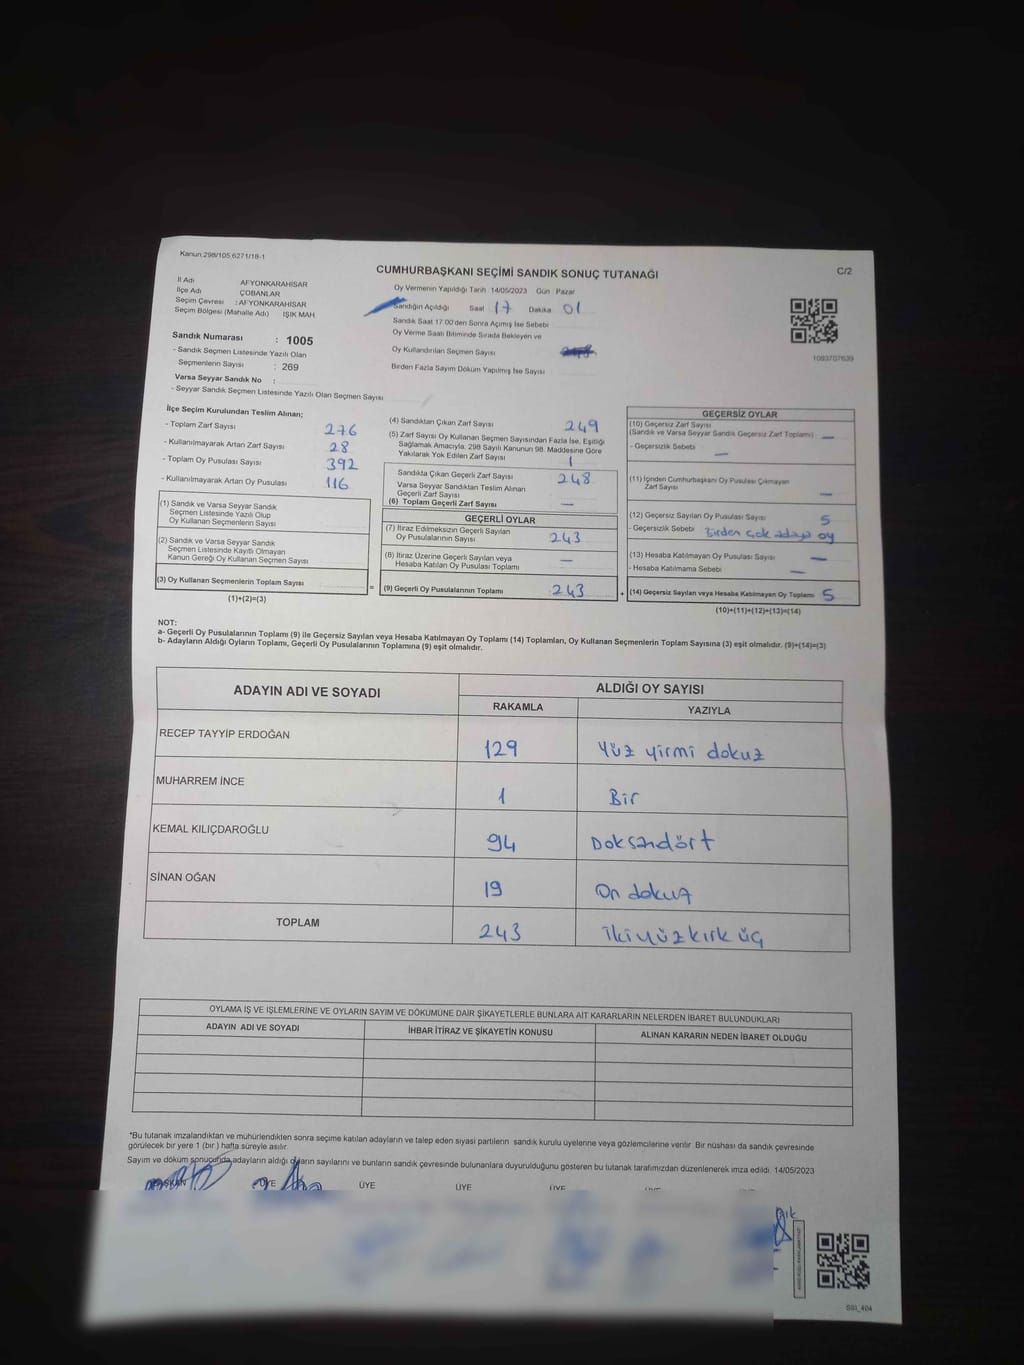 Kanun:298/105.6271/18-1
CUMHURBAŞKANI SEÇİMİ SANDIK SONUÇ TUTANAĞI
C/2
İl Adı AFYONKARAHİSAR
İlçe Adı ÇOBANLAR
Seçim Çevresi : AFYONKARAHİSAR
Seçim Bölgesi (Mahalle Adı) IŞIK MAH
Oy Vermenin Yapıldığı Tarih 14/05/2023 Gün : Pazar
Sandığın Açıldığı Saat 17 Dakika 01
Sandık Saat 17:00'den Sonra Açılmış İse Sebebi
Oy Verme Saati Bitiminde Sırada Bekleyen ve
Oy Kullandırılan Seçmen Sayısı
Birden Fazla Sayım Döküm Yapılmış İse Sayısı
1093707639
Sandık Numarası : 1005
- Sandık Seçmen Listesinde Yazılı Olan
Seçmenlerin Sayısı : 269
Varsa Seyyar Sandık No :
- Seyyar Sandık Seçmen Listesinde Yazılı Olan Seçmen Sayısı
İlçe Seçim Kurulundan Teslim Alınan;
- Toplam Zarf Sayısı 276
- Kullanılmayarak Artan Zarf Sayısı 28
- Toplam Oy Pusulası Sayısı 392
- Kullanılmayarak Artan Oy Pusulası 116
(1) Sandık ve Varsa Seyyar Sandık
Seçmen Listesinde Yazılı Olup
Oy Kullanan Seçmenlerin Sayısı
(2) Sandık ve Varsa Seyyar Sandık
Seçmen Listesinde Kayıtlı Olmayan
Kanun Gereği Oy Kullanan Seçmen Sayısı
(3) Oy Kullanan Seçmenlerin Toplam Sayısı =
(1)+(2)=(3)
(4) Sandıktan Çıkan Zarf Sayısı 249
(5) Zarf Sayısı Oy Kullanan Seçmen Sayısından Fazla İse, Eşitliği
Sağlamak Amacıyla, 298 Sayılı Kanunun 98. Maddesine Göre
Yakılarak Yok Edilen Zarf Sayısı 1
Sandıkta Çıkan Geçerli Zarf Sayısı 248
Varsa Seyyar Sandıktan Teslim Alınan
Geçerli Zarf Sayısı
(6) Toplam Geçerli Zarf Sayısı —
GEÇERLİ OYLAR
(7) İtiraz Edilmeksizin Geçerli Sayılan
Oy Pusulalarının Sayısı 243
(8) İtiraz Üzerine Geçerli Sayılan veya
Hesaba Katılan Oy Pusulası Toplamı —
(9) Geçerli Oy Pusulalarının Toplamı 243 +
GEÇERSİZ OYLAR
(10) Geçersiz Zarf Sayısı
(Sandık ve Varsa Seyyar Sandık Geçersiz Zarf Toplamı) —
- Geçersizlik Sebebi —
(11) İçinden Cumhurbaşkanı Oy Pusulası Çıkmayan
Zarf Sayısı —
(12) Geçersiz Sayılan Oy Pusulası Sayısı 5
- Geçersizlik Sebebi Birden çok adaya oy
(13) Hesaba Katılmayan Oy Pusulası Sayısı —
- Hesaba Katılmama Sebebi —
(14) Geçersiz Sayılan veya Hesaba Katılmayan Oy Toplamı 5
(10)+(11)+(12)+(13)=(14)
NOT:
a- Geçerli Oy Pusulalarının Toplamı (9) ile Geçersiz Sayılan veya Hesaba Katılmayan Oy Toplamı (14) Toplamları, Oy Kullanan Seçmenlerin Toplam Sayısına (3) eşit olmalıdır. (9)+(14)=(3)
b- Adayların Aldığı Oyların Toplamı, Geçerli Oy Pusulalarının Toplamına (9) eşit olmalıdır.
ADAYIN ADI VE SOYADI
ALDIĞI OY SAYISI
RAKAMLA YAZIYLA
RECEP TAYYİP ERDOĞAN 129 Yüz yirmi dokuz
MUHARREM İNCE 1 Bir
KEMAL KILIÇDAROĞLU 94 Doksandört
SİNAN OĞAN 19 On dokuz
TOPLAM 243 İkiyüzkırk üç
OYLAMA İŞ VE İŞLEMLERİNE VE OYLARIN SAYIM VE DÖKÜMÜNE DAİR ŞİKAYETLERLE BUNLARA AİT KARARLARIN NELERDEN İBARET BULUNDUKLARI
ADAYIN ADI VE SOYADI İHBAR İTİRAZ VE ŞİKAYETİN KONUSU ALINAN KARARIN NEDEN İBARET OLDUĞU
*Bu tutanak imzalandıktan ve mühürlendikten sonra seçime katılan adayların ve talep eden siyasi partilerin sandık kurulu üyelerine veya gözlemcilerine verilir. Bir nüshası da sandık çevresinde
görülecek bir yere 1 (bir ) hafta süreyle asılır.
Sayım ve döküm sonucunda adayların aldığı oyların sayılarını ve bunların sandık çevresinde bulunanlara duyurulduğunu gösteren bu tutanak tarafımızdan düzenlenerek imza edildi. 14/05/2023
BAŞKAN ÜYE ÜYE ÜYE ÜYE
SSI_404